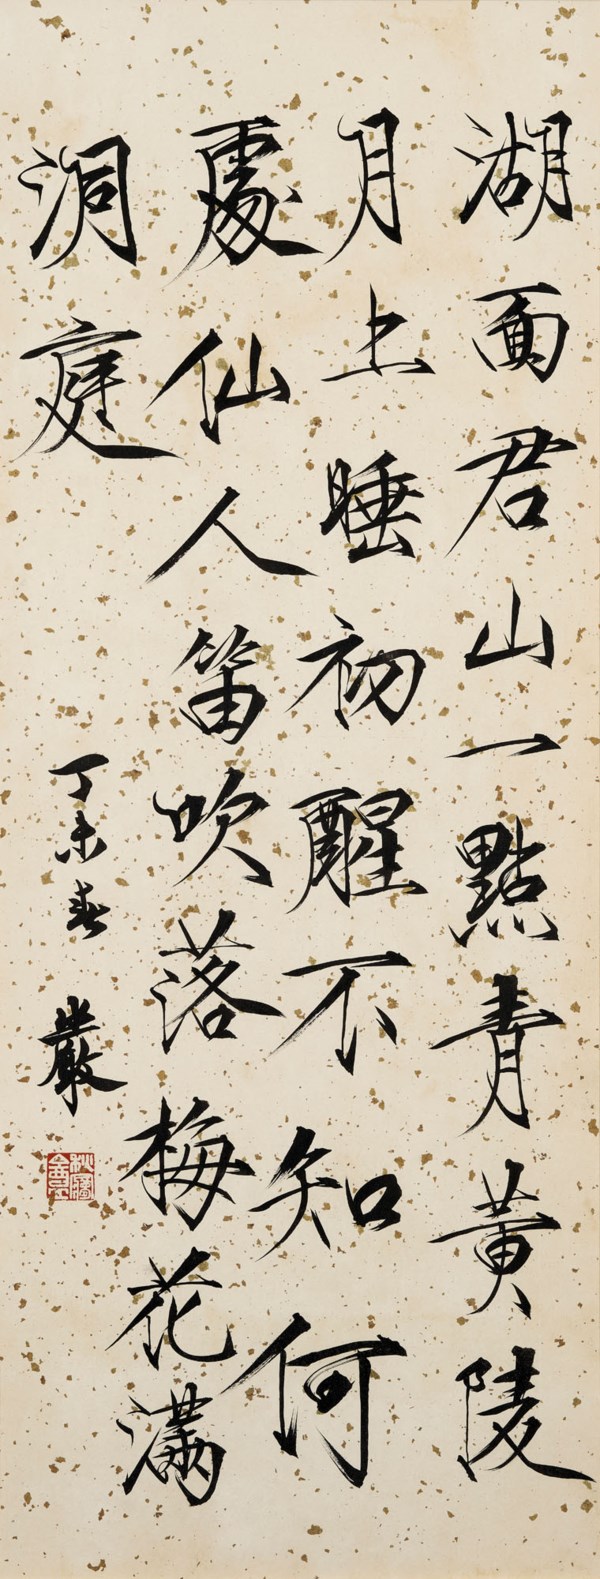 湖面君山一點青黃陵
月上睡初醒不知何
處仙人笛吹落梅花滿
洞庭
丁未春 巖